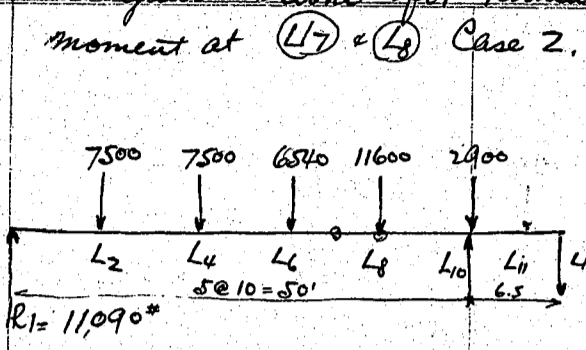 moment at L7 & L8 Case 2.
7500 7500 6540 11600 2900
L2 L4 L6 L8 L10 L11
5@10=50' 6.5
R1= 11,090#